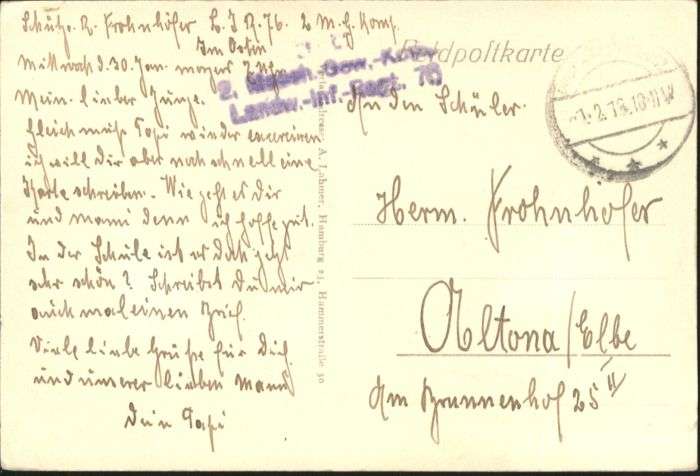 Schütze R. Frohnhöfer L. I. R. 76. 2 M. G. Komp.
Im Osten
Mittwoch d. 30. Jan. morgens 7 Uhr
Mein lieber Junge.
Gleich muß Papi wieder exerzieren
ich will dir aber noch schnell eine
Karte schreiben. Wie geht es dir
und Mami denn ich hoffe gut.
In der Schule ist es doch jetzt
sehr schön? Schreibst Du mir
auch mal einen Brief.
Viele liebe Grüße für Dich
und unserer lieben Mami
Dein Papi
Feldpostkarte
2. Masch.-Gew.-Komp.
Landw.-Inf.-Regt. 76
1.2.18.10-11V
An den Schüler.
Herm. Frohnhöfer
Altona/Elbe
Am Brunnenhof 25 II
A. Lahmer, Hamburg 21, Hammerstraße 30